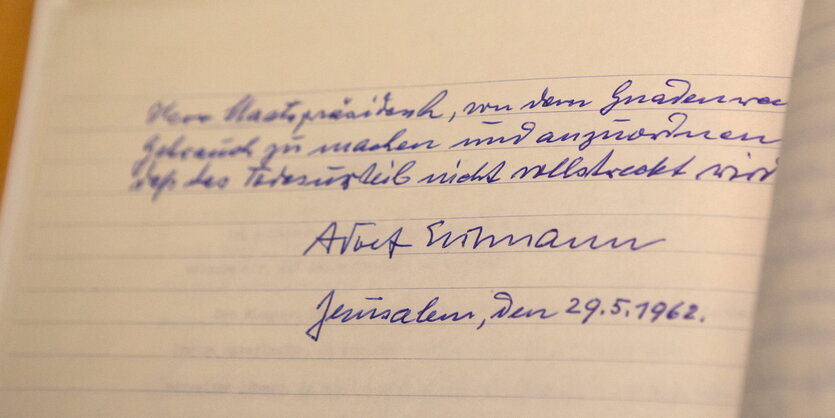 Herr Staatspräsident, von dem Gnadenrec
Gebrauch zu machen und anzuordnen
daß das Todesurteil nicht vollstreckt wird
Adolf Eichmann
Jerusalem, den 29.5.1962.